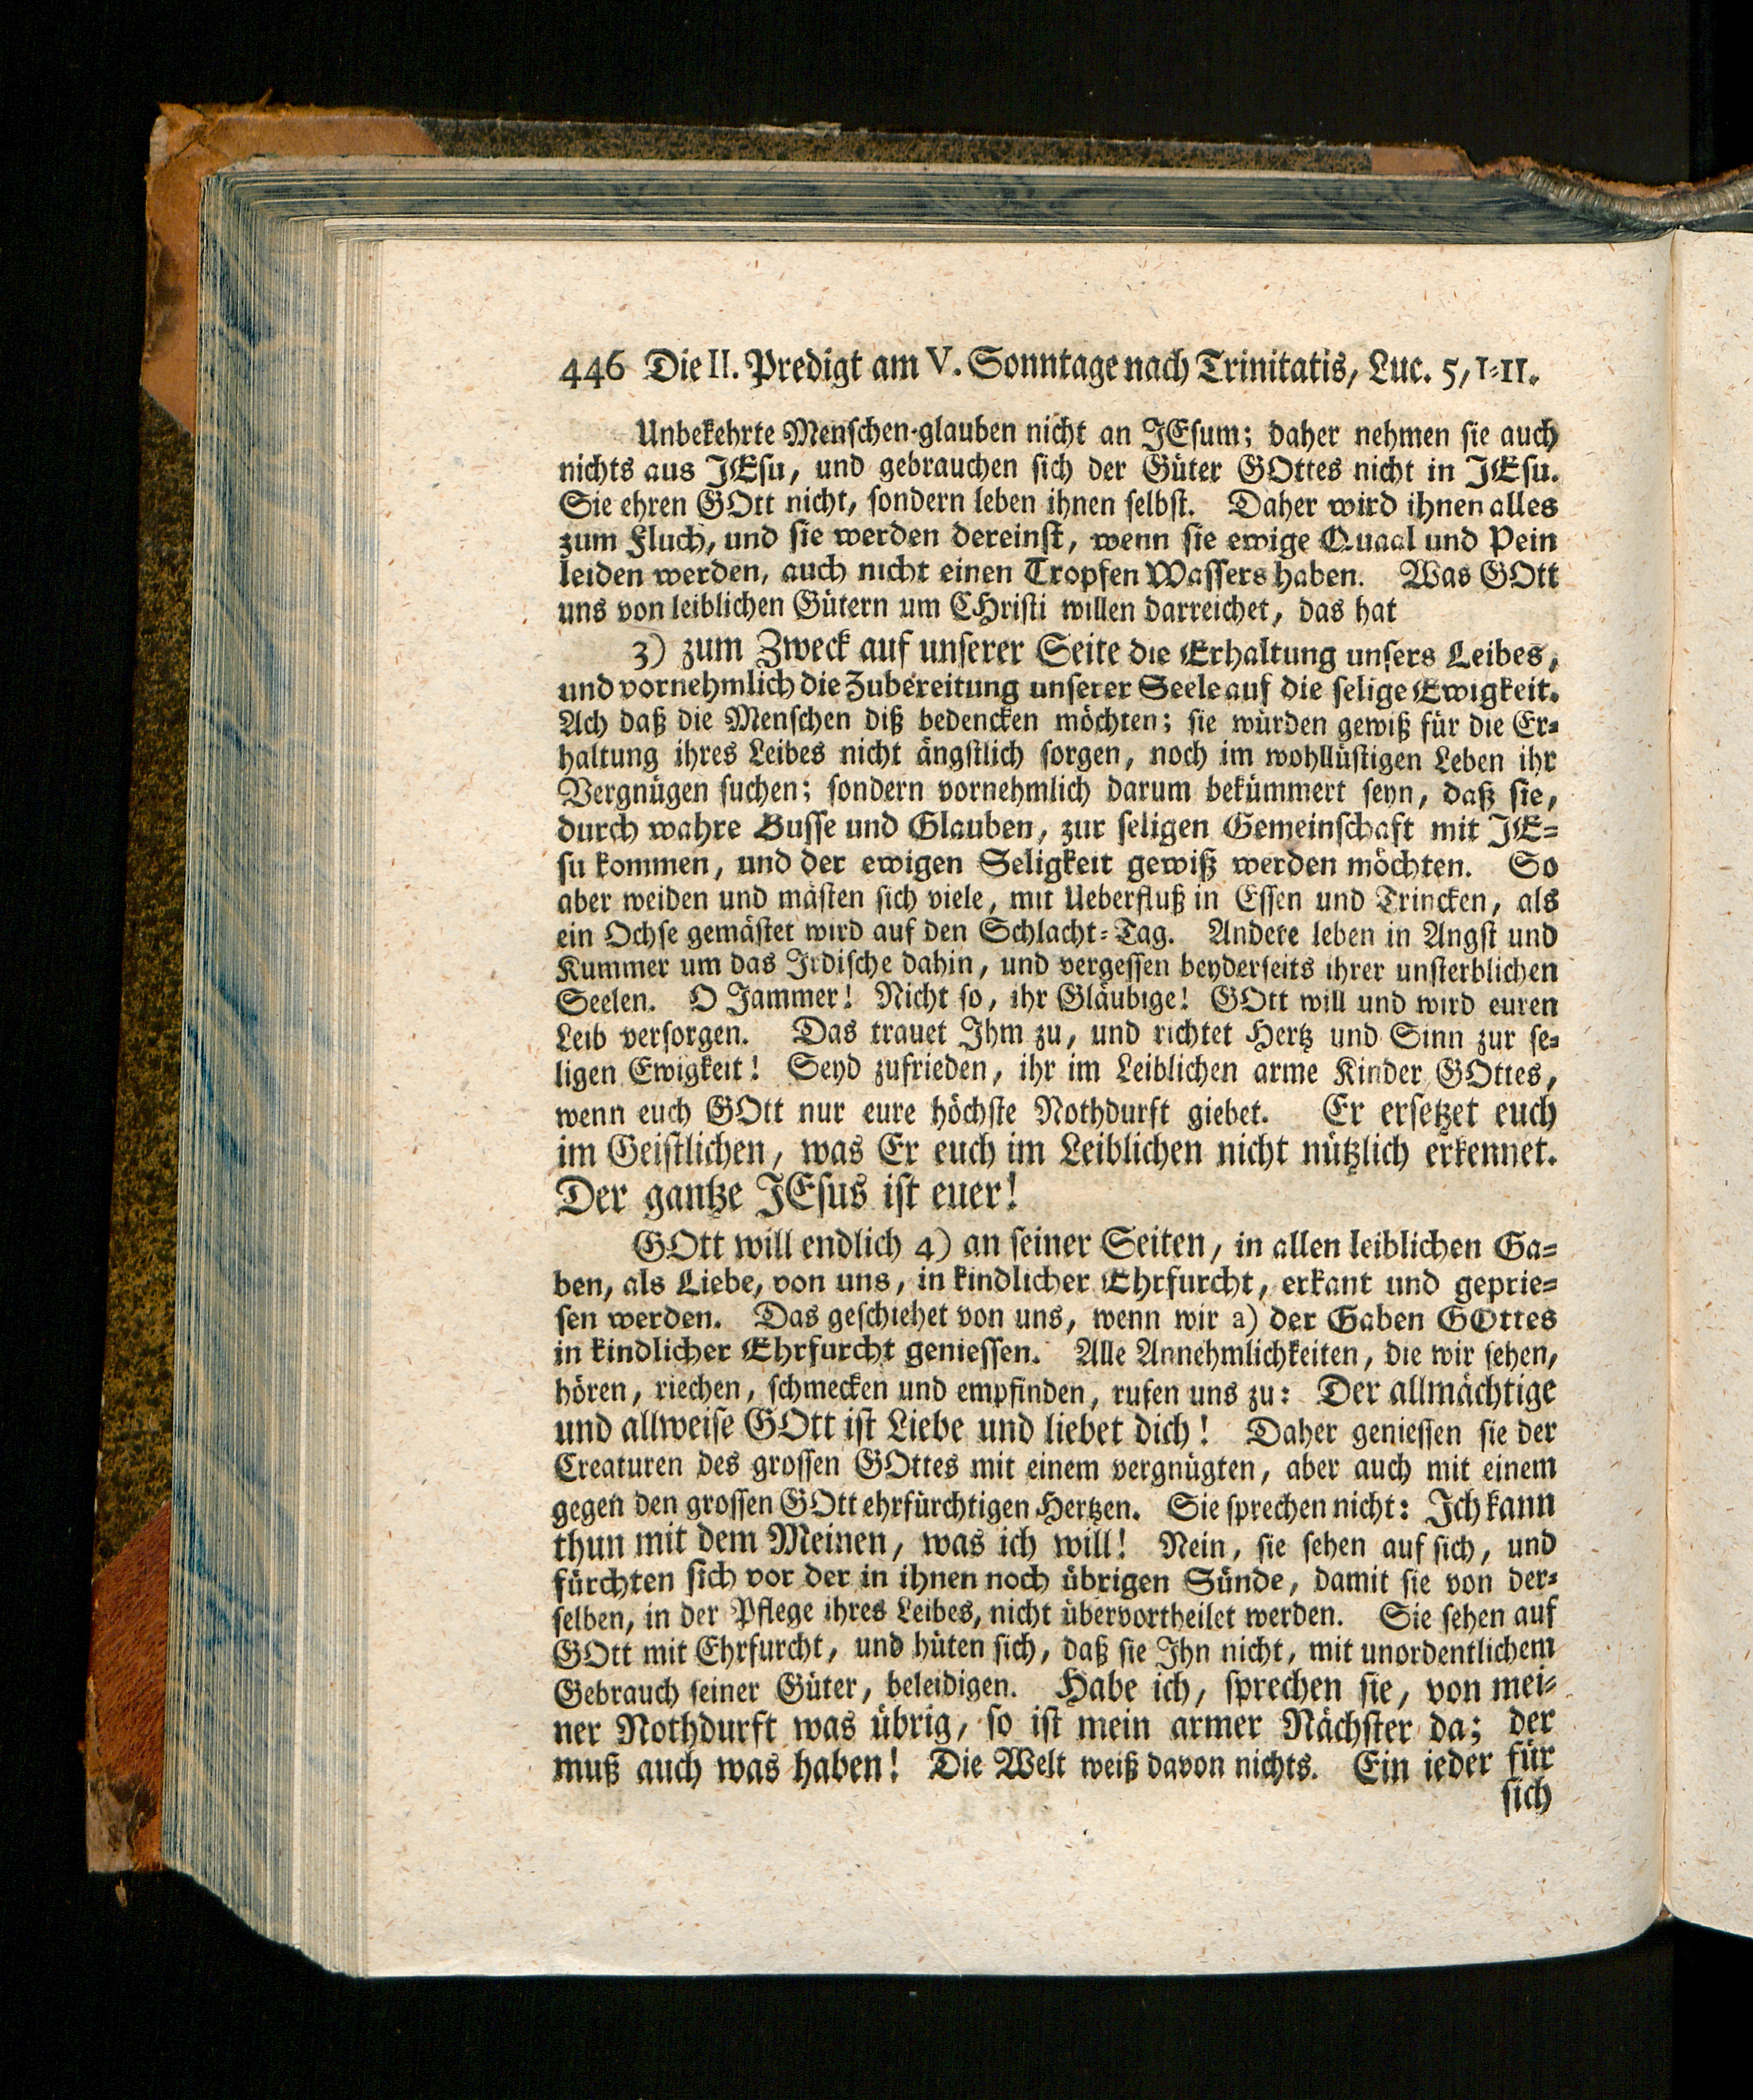 446 Die II. Predigt am V. Sonntage nach Trinitatis, Luc. 5, 1-11.
Unbekehrte Menschen-glauben nicht an JEsum; daher nehmen sie auch
nichts aus JEsu, und gebrauchen sich der Güter GOttes nicht in JEsu.
Sie ehren GOtt nicht, sondern leben ihnen selbst. Daher wird ihnen alles
zum Fluch, und sie werden dereinst, wenn sie ewige Quaal und Pein
leiden werden, auch nicht einen Tropfen Wassers haben. Was GOtt
uns von leiblichen Gütern um CHristi willen darreichet, das hat
3) zum Zweck auf unserer Seite die Erhaltung unsers Leibes,
und vornehmlich die Zubereitung unserer Seele auf die selige Ewigkeit.
Ach daß die Menschen diß bedencken möchten; sie würden gewiß für die Er-
haltung ihres Leibes nicht ängstlich sorgen, noch im wohllüstigen Leben ihr
Vergnügen suchen; sondern vornehmlich darum bekümmert seyn, daß sie,
durch wahre Busse und Glauben, zur seligen Gemeinschaft mit JE-
su kommen, und der ewigen Seligkeit gewiß werden möchten. So
aber weiden und mästen sich viele, mit Ueberfluß in Essen und Trincken, als
ein Ochse gemästet wird auf den Schlacht-Tag. Andere leben in Angst und
Kummer um das Irdische dahin, und vergessen beyderseits ihrer unsterblichen
Seelen. O Jammer! Nicht so, ihr Gläubige! GOtt will und wird euren
Leib versorgen. Das trauet Ihm zu, und richtet Hertz und Sinn zur se-
ligen Ewigkeit! Seyd zufrieden, ihr im Leiblichen arme Kinder GOttes,
wenn euch GOtt nur eure höchste Nothdurft giebet. Er ersetzet euch
im Geistlichen, was Er euch im Leiblichen nicht nützlich erkennet.
Der gantze JEsus ist euer!
GOtt will endlich 4) an seiner Seiten, in allen leiblichen Ga-
ben, als Liebe, von uns, in kindlicher Ehrfurcht, erkant und geprie-
sen werden. Das geschiehet von uns, wenn wir a) der Gaben GOttes
in kindlicher Ehrfurcht geniessen. Alle Annehmlichkeiten, die wir sehen,
hören, riechen, schmecken und empfinden, rufen uns zu: Der allmächtige
und allweise GOtt ist Liebe und liebet dich! Daher geniessen sie der
Creaturen des grossen GOttes mit einem vergnügten, aber auch mit einem
gegen den grossen GOtt ehrfürchtigen Hertzen. Sie sprechen nicht: Ich kann
thun mit dem Meinen, was ich will! Nein, sie sehen auf sich, und
fürchten sich vor der in ihnen noch übrigen Sünde, damit sie von der-
selben, in der Pflege ihres Leibes, nicht übervortheilet werden. Sie sehen auf
GOtt mit Ehrfurcht, und hüten sich, daß sie Ihn nicht, mit unordentlichem
Gebrauch seiner Güter, beleidigen. Habe ich, sprechen sie, von mei-
ner Nothdurft was übrig, so ist mein armer Nächster da; der
muß auch was haben! Die Welt weiß davon nichts. Ein ieder für
sich